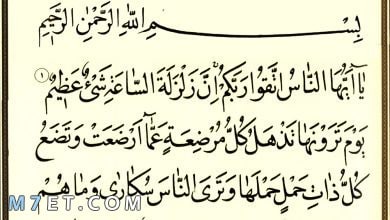 بِسْمِ اللَّهِ الرَّحْمَٰنِ الرَّحِيمِ
يَا أَيُّهَا النَّاسُ اتَّقُوا رَبَّكُمْ إِنَّ زَلْزَلَةَ السَّاعَةِ شَيْءٌ عَظِيمٌ ١
يَوْمَ تَرَوْنَهَا تَذْهَلُ كُلُّ مُرْضِعَةٍ عَمَّا أَرْضَعَتْ وَتَضَعُ
كُلُّ ذَاتِ حَمْلٍ حَمْلَهَا وَتَرَى النَّاسَ سُكَارَى وَمَا هُمْ
M7ET.COM